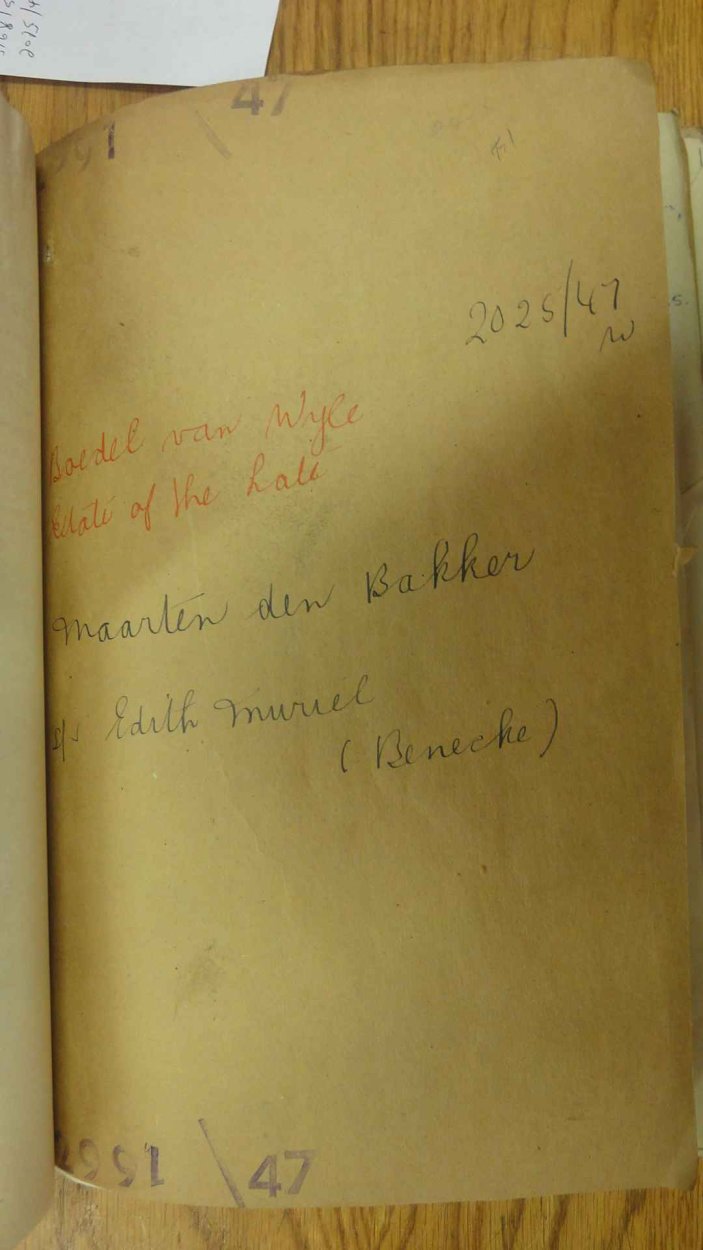 \ 47
2025/47
Boedel van Wyle
Estate of the Late
Maarten den Bakker
s/s Edith Muriel
(Benecke)
\ 47